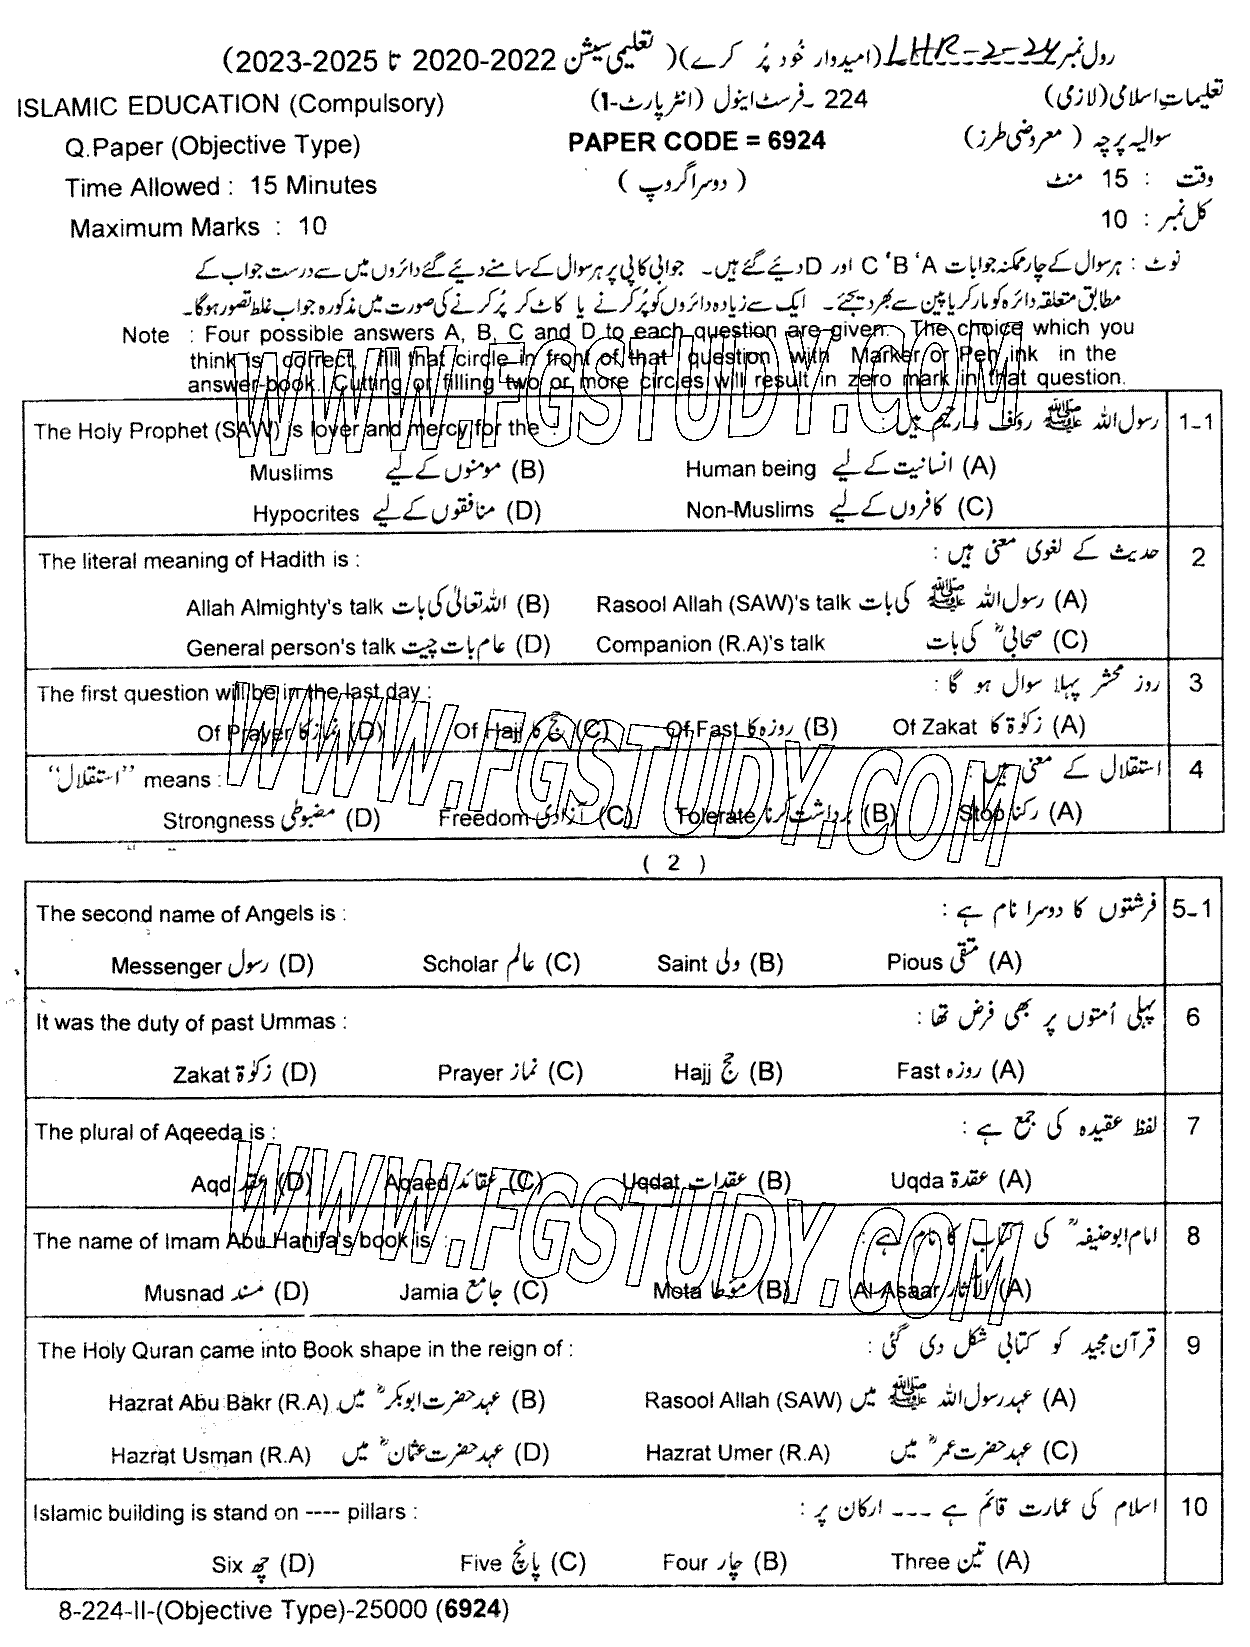 رول نمبر LHR-2-24 (امیدوار خُود پُر کرے) (تعلیمی سیشن 2022-2020 تا 2025-2023)
ISLAMIC EDUCATION (Compulsory) 224 ۔ فرسٹ اینول (انٹر پارٹ-I) تعلیماتِ اسلامی (لازمی)
Q.Paper (Objective Type) PAPER CODE = 6924 سوالیہ پرچہ ( معروضی طرز)
Time Allowed : 15 Minutes (دوسرا گروپ) وقت : 15 منٹ
Maximum Marks : 10 کل نمبر : 10
نوٹ : ہر سوال کے چار ممکنہ جوابات A ' B ' C اور D دیئے گئے ہیں۔ جوابی کاپی پر ہر سوال کے سامنے دیئے گئے دائروں میں سے درست جواب کے
مطابق متعلقہ دائرہ کو مارکر یا پین سے بھر دیجئے۔ ایک سے زیادہ دائروں کو پُر کرنے یا کاٹ کر پُر کرنے کی صورت میں مذکورہ جواب غلط تصور ہوگا۔
Note : Four possible answers A, B, C and D to each question are given. The choice which you
think is correct, fill that circle in front of that question with Marker or Pen ink in the
answer-book. Cutting or filling two or more circles will result in zero mark in that question.
The Holy Prophet (SAW) is lover and mercy for the : رسول اللہ ﷺ رؤف و رحیم ہیں : 1-1
Muslims مومنوں کے لیے (B) Human being انسانیت کے لیے (A)
Hypocrites منافقوں کے لیے (D) Non-Muslims کافروں کے لیے (C)
The literal meaning of Hadith is : حدیث کے لغوی معنی ہیں : 2
Allah Almighty's talk اللہ تعالیٰ کی بات (B) Rasool Allah (SAW)'s talk رسول اللہ ﷺ کی بات (A)
General person's talk عام بات چیت (D) Companion (R.A)'s talk صحابیؓ کی بات (C)
The first question will be in the last day : روز محشر پہلا سوال ہو گا : 3
Of Prayer نماز کا (D) Of Hajj حج کا (C) Of Fast روزہ کا (B) Of Zakat زکوٰۃ کا (A)
"استقلال" means : استقلال کے معنی ہیں : 4
Strongness مضبوطی (D) Freedom آزادی (C) Tolerate برداشت کرنا (B) Stop رکنا (A)
( 2 )
The second name of Angels is : فرشتوں کا دوسرا نام ہے : 5-1
Messenger رسول (D) Scholar عالم (C) Saint ولی (B) Pious متقی (A)
It was the duty of past Ummas : پہلی اُمتوں پر بھی فرض تھا : 6
Zakat زکوٰۃ (D) Prayer نماز (C) Hajj حج (B) Fast روزہ (A)
The plural of Aqeeda is : لفظ عقیدہ کی جمع ہے : 7
Aqd عقد (D) Aqaed عقائد (C) Uqdat عقدات (B) Uqda عقدۃ (A)
The name of Imam Abu Hanifa's book is : امام ابو حنیفہؒ کی کتاب کا نام ہے : 8
Musnad مسند (D) Jamia جامع (C) Mota مؤطا (B) Al-Asaar الآثار (A)
The Holy Quran came into Book shape in the reign of : قرآن مجید کو کتابی شکل دی گئی : 9
Hazrat Abu Bakr (R.A) عہد حضرت ابوبکرؓ میں (B) Rasool Allah (SAW) عہد رسول اللہ ﷺ میں (A)
Hazrat Usman (R.A) عہد حضرت عثمانؓ میں (D) Hazrat Umer (R.A) عہد حضرت عمرؓ میں (C)
Islamic building is stand on ---- pillars : اسلام کی عمارت قائم ہے ۔۔۔۔ ارکان پر : 10
Six چھ (D) Five پانچ (C) Four چار (B) Three تین (A)
8-224-II-(Objective Type)-25000 (6924)
WWW.FGSTUDY.COM
WWW.FGSTUDY.COM
WWW.FGSTUDY.COM